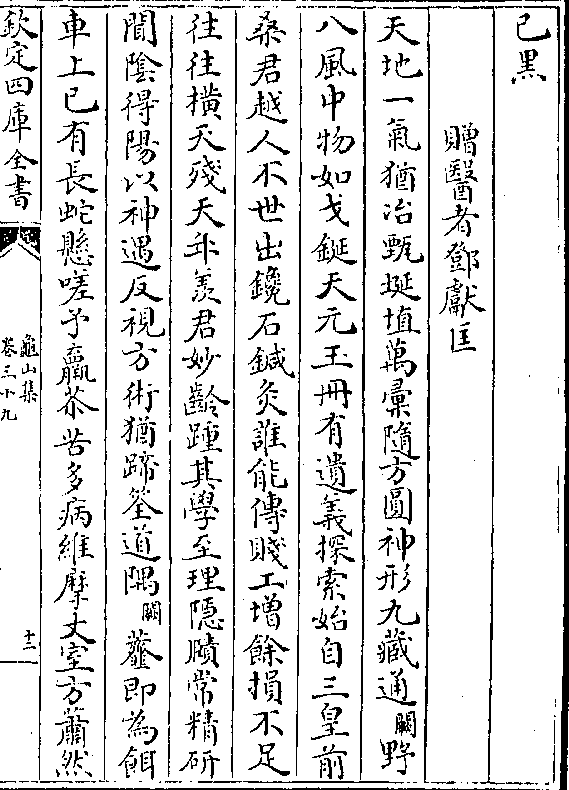 已黑
贈醫者鄧獻匡
天地一氣猶冶甄埏埴萬彙隨方圓神形九藏通闕野
八風中物如戈鋋天元玉冊有遺義探索始自三皇前
桑君越人不世出鑱石鍼灸誰能傳賤工增餘損不足
往往橫夭殘天年羨君妙齡踵其學至理隱賾常精研
閒陰得陽以神遇反視方術猶蹄筌道隅闕虀即為餌
車上已有長蛇懸嗟予羸苶苦多病維摩丈室方蕭然
欽定四庫全書
龜山集
卷三十九
十二